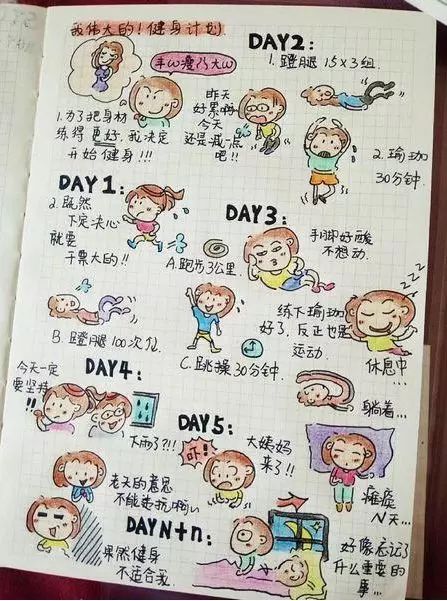 我伟大的！健身计划
丰ω瘦乃大ω
1.为了把身材
练得更好，我决定
开始健身!!!
DAY1:
2.既然
下定决心
就要
干票大的!!
A.跑步3公里.
B.蹬腿100次位.
C.跳操30分钟.
DAY2:
1.蹬腿15×3组.
昨天
好累啊
今天
还是减一点
吧!!
2.瑜珈
30分钟.
DAY3:
手脚好酸
不想动.
练下瑜珈
好了.反正也是
运动.
zzz
休息中...
躺着...
DAY4:
今天一定
要坚持!!
下雨了?!!
老天的意思
不能违抗啊~
DAY5:
吓!
大姨妈
来了!!
瘫痪
N天...
DAY N+n:
果然健身
不适合我.
好像忘记了
什么重要的
事...